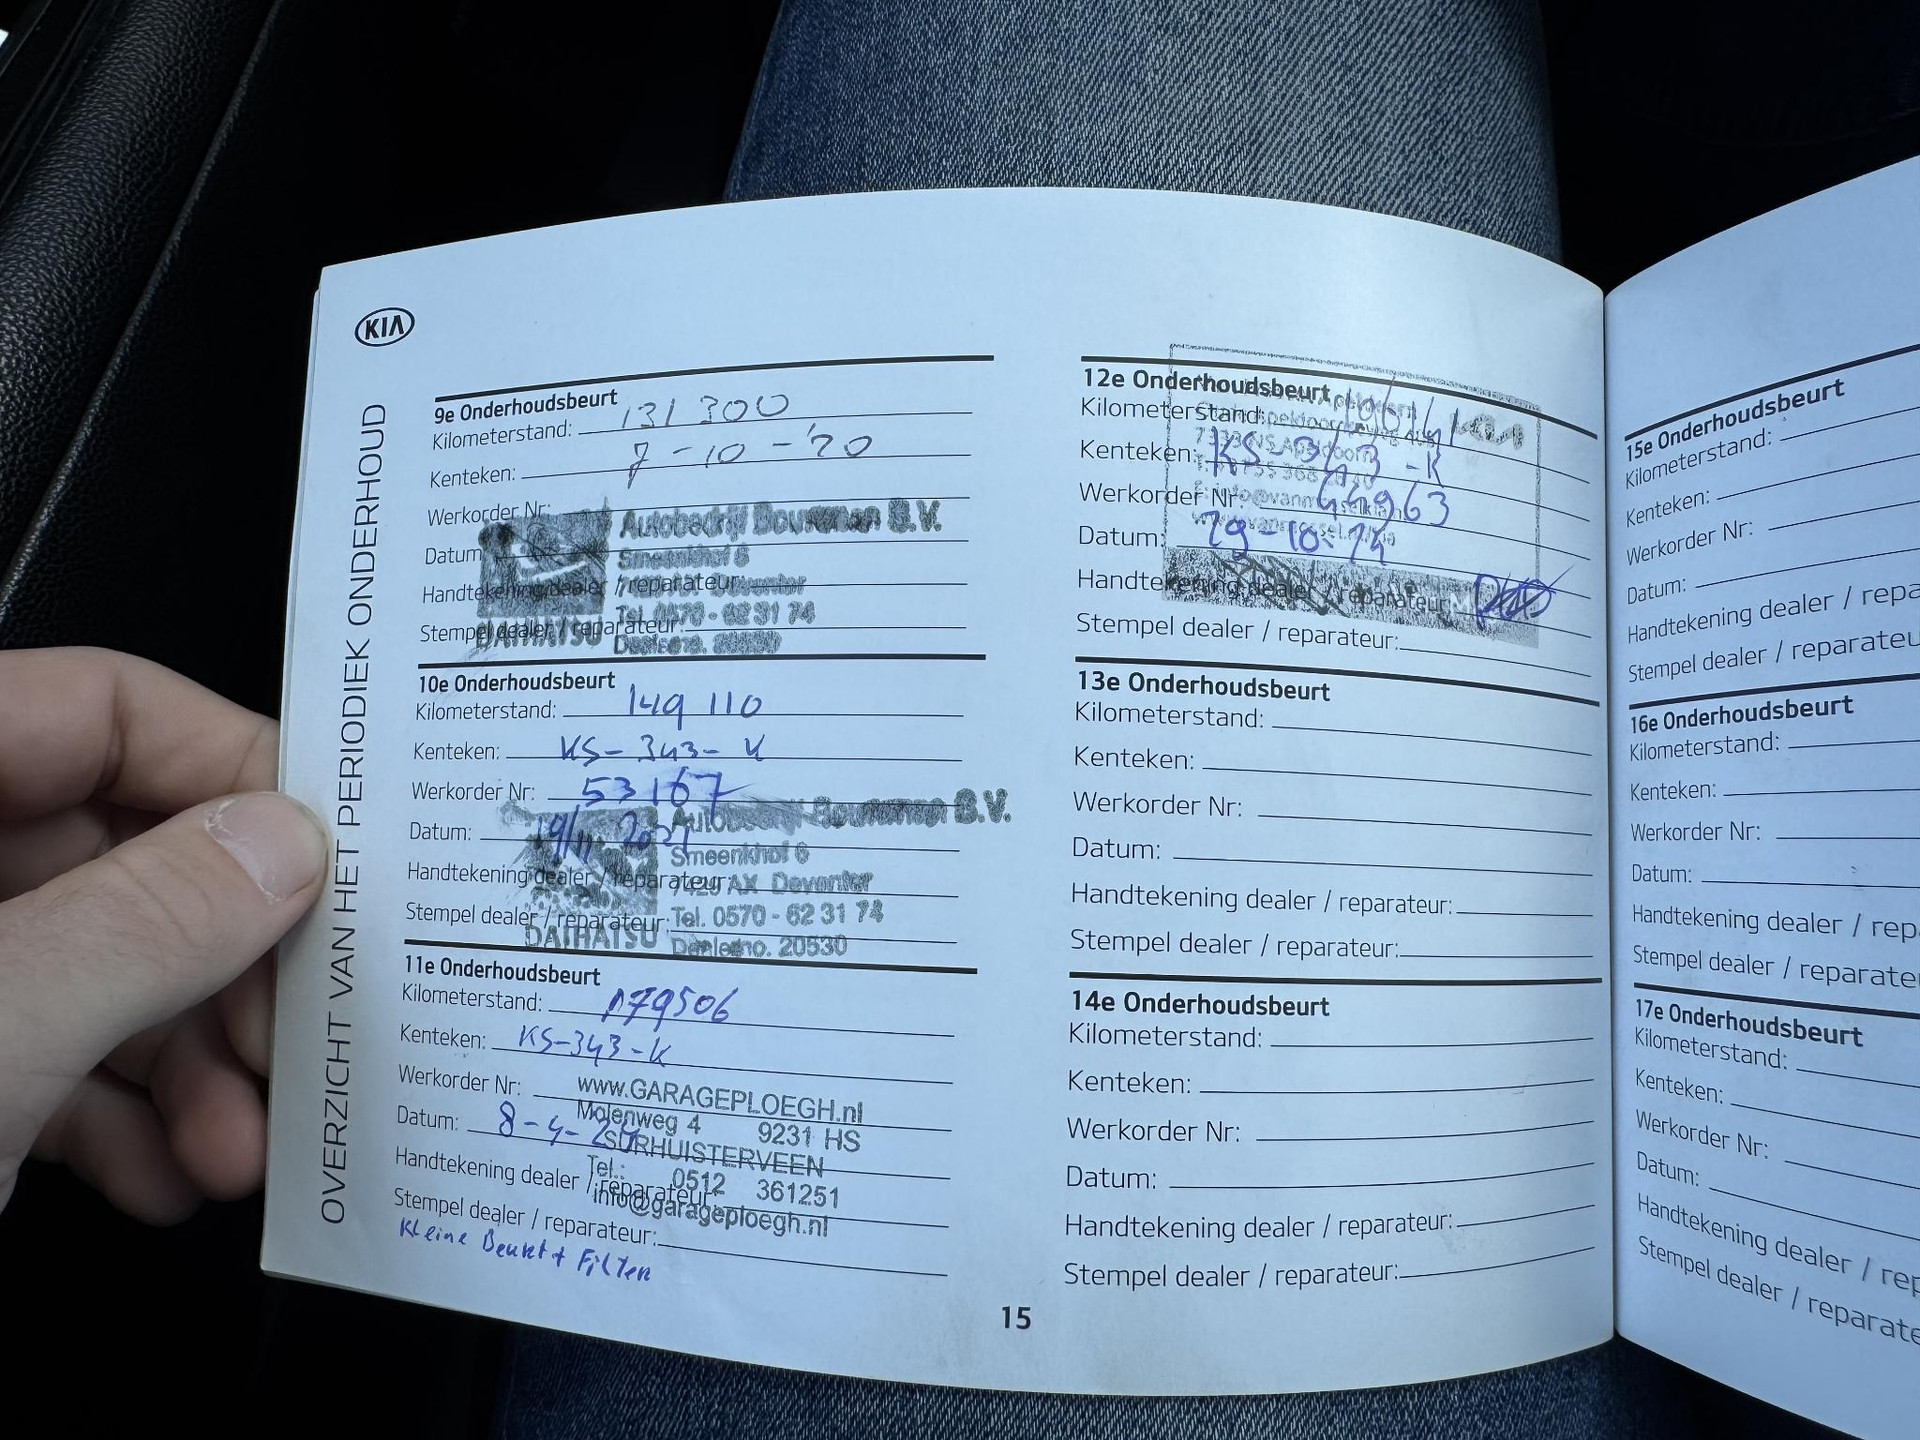 KIA
OVERZICHT VAN HET PERIODIEK ONDERHOUD
9e Onderhoudsbeurt
Kilometerstand: 131 300
Kenteken: 7-10-'20
Werkorder Nr:
Datum:
Handtekening dealer / reparateur:
Stempel dealer / reparateur:
Autobedrijf Bouwman B.V.
Smeenkhof 6
Deventer
Tel. 0570 - 62 31 74
Dealerno. 20530
DAIHATSU
10e Onderhoudsbeurt
Kilometerstand: 149 110
Kenteken: KS-343-K
Werkorder Nr: 53167
Datum: 19/11 2021
Handtekening dealer / reparateur:
Stempel dealer / reparateur:
Autobedrijf Bouwman B.V.
Smeenkhof 6
AX Deventer
Tel. 0570 - 62 31 74
Dealerno. 20530
DAIHATSU
11e Onderhoudsbeurt
Kilometerstand: 179506
Kenteken: KS-343-K
Werkorder Nr:
Datum: 8-4-24
Handtekening dealer / reparateur:
Stempel dealer / reparateur:
www.GARAGEPLOEGH.nl
Molenweg 4 9231 HS
SURHUISTERVEEN
Tel.: 0512 361251
info@garageploegh.nl
Kleine Beurt + Filter
12e Onderhoudsbeurt
Kilometerstand:
Kenteken: KS-343-K
Werkorder Nr: 44963
Datum:
Handtekening dealer / reparateur:
Stempel dealer / reparateur:
KIA
13e Onderhoudsbeurt
Kilometerstand:
Kenteken:
Werkorder Nr:
Datum:
Handtekening dealer / reparateur:
Stempel dealer / reparateur:
14e Onderhoudsbeurt
Kilometerstand:
Kenteken:
Werkorder Nr:
Datum:
Handtekening dealer / reparateur:
Stempel dealer / reparateur:
15
15e Onderhoudsbeurt
Kilometerstand:
Kenteken:
Werkorder Nr:
Datum:
Handtekening dealer / repa
Stempel dealer / reparateu
16e Onderhoudsbeurt
Kilometerstand:
Kenteken:
Werkorder Nr:
Datum:
Handtekening dealer / rep
Stempel dealer / reparate
17e Onderhoudsbeurt
Kilometerstand:
Kenteken:
Werkorder Nr:
Datum:
Handtekening dealer / rep
Stempel dealer / reparate